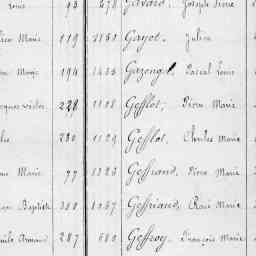 Louis 93 878 Javard, Joseph Pierre
Marie 119 1150 Gayot, Julien
Marie 194 1435 Gazengel, Pascal Louis
Jacques Victor 228 1108 Gefflot, Pierre Marie
280 1129 Gefflot, Charles Marie
Marie 77 1323 Geffrand, Pierre Marie
Baptiste 308 1067 Geffriaud, René Marie
Armand 287 680 Geffroy, François Marie